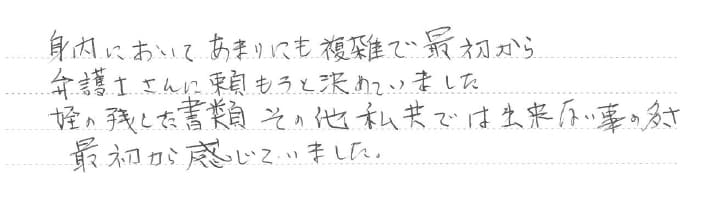 身内においてあまりにも複雑で最初から
弁護士さんに頼もうと決めていました
姪の残した書類その他私共では出来ない事の多さ
最初から感じていました。